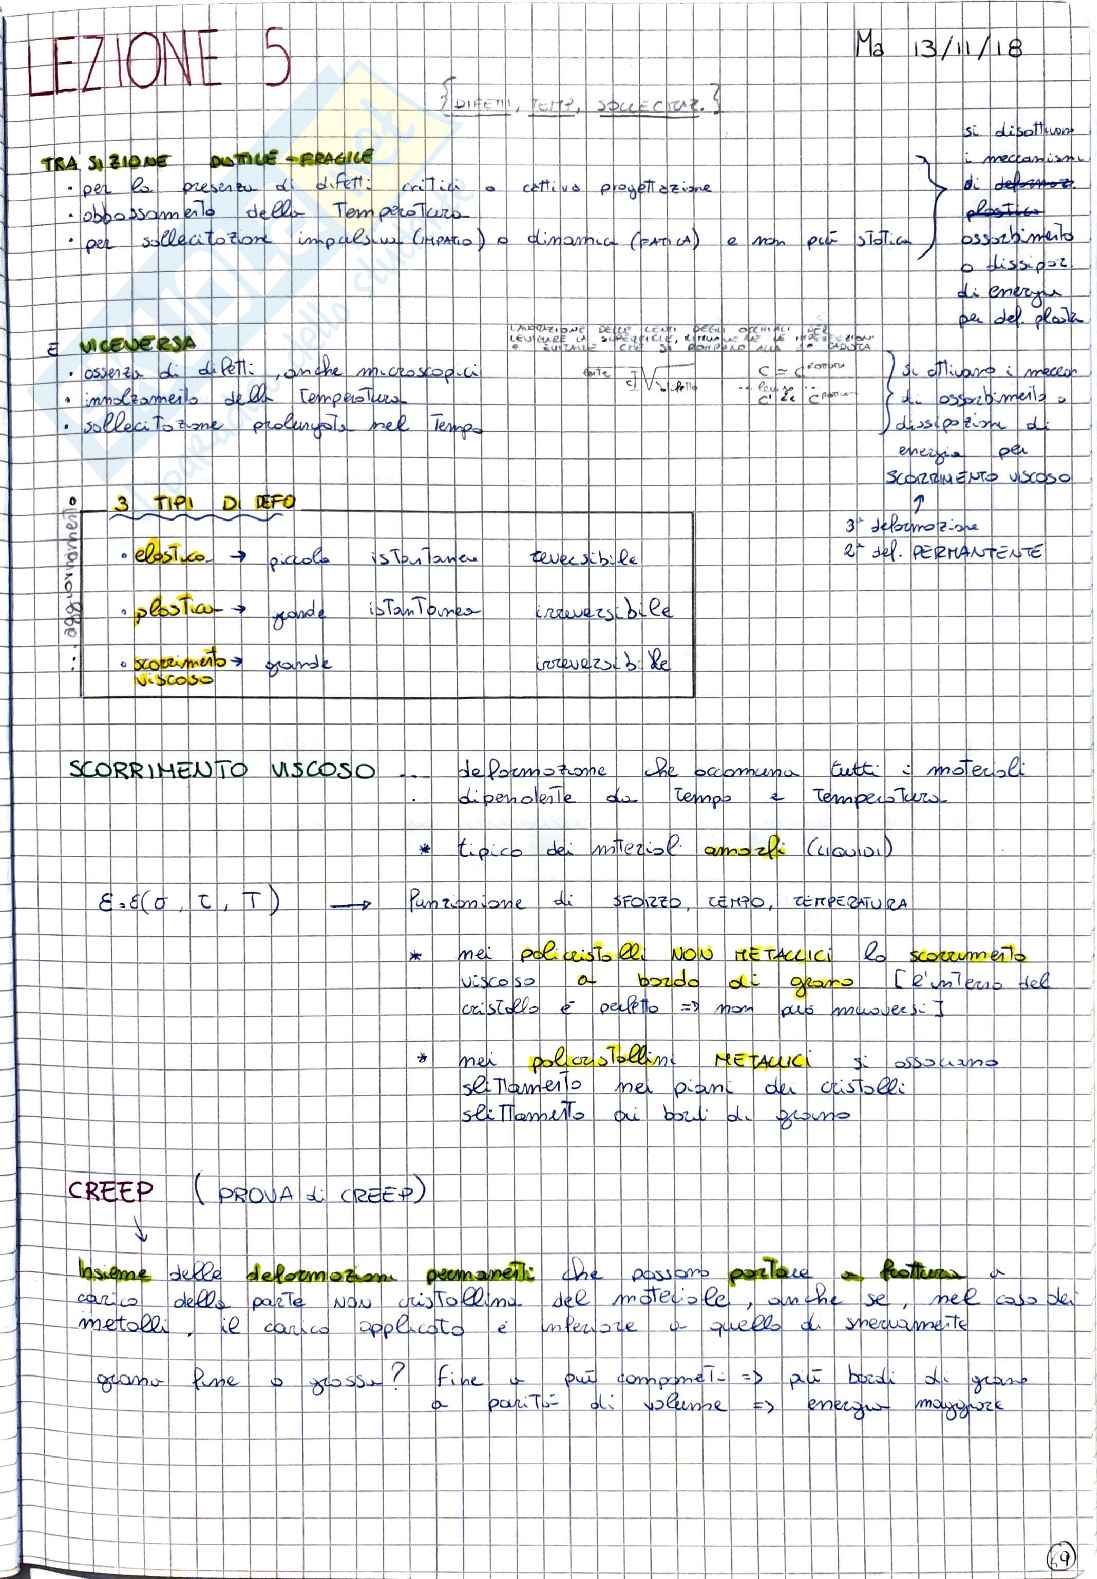 LEZIONE 5
Ma 13/11/18
{DIFETTI, TEMP, SOLLECITAZ.}
TRASIZIONE DUTTILE-FRAGILE
· per la presenza di difetti critici o cattiva progettazione
· abbassamento della Temperatura
· per sollecitazione impulsiva (IMPATTO) o dinamica (FATICA) e non più statica
si disattivano
i meccanismi
di deformaz.
plastica
assorbimento
o dissipaz.
di energia
per def. plastica
E VICEVERSA
· assenza di difetti, anche microscopici
· innalzamento della Temperatura
· sollecitazione prolungata nel Tempo
LAVORAZIONE DELLE LENTI DEGLI OCCHIALI PER
LEVIGARE LA SUPERFICIE, RIMUOVERE LE IMPERFEZIONI
E EVITARE CHE SI ROMPANO ALLA 1° CADUTA
si attivano i meccan
di assorbimento o
dissipazione di
energia per
SCORRIMENTO VISCOSO
↑
3ª deformazione
2ª def. PERMANTENTE
... aggiornamento
3 TIPI DI DEFO
· elastica → piccola istantanea reversibile
· plastica → grande istantanea irreversibile
· scorrimento → grande irreversibile
viscoso
SCORRIMENTO VISCOSO ... deformazione che accomuna tutti i materiali
· dipendente da tempo e temperatura
* tipico dei materiali amorfi (LIQUIDI)
ε=ε(σ, τ, T) → funzionione di SFORZO, TEMPO, TEMPERATURA
* nei policristalli NON METALLICI lo scorrimento
viscoso a bordo di grano [l'interno del
cristallo è perfetto => non può muoversi]
* nei policristallini METALLICI si associano
slittamento nei piani dei cristalli
slittamento ai bordi di grano
CREEP (PROVA di CREEP)
↓
Insieme delle deformazioni permanenti che possono portare a frattura a
carico della parte NON cristallina del materiale, anche se, nel caso dei
metalli, il carico applicato è inferiore a quello di snervamente
grano fine o grosso? Fine ha più componenti => più bordi di grano
a parità di volume => energia maggiore
69